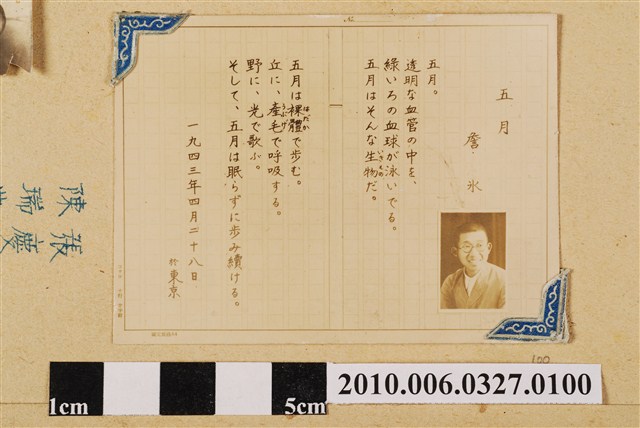 五月
詹氷
五月。
透明な血管の中を、
綠いろの血球が泳いでる。
五月はそんな生物だ。
いきもの
五月は裸體で步む。
はだか
丘に、產毛で呼吸する。
うぶげ
野に、光で歌ふ。
そして、五月は眠らずに步み續ける。
一九四三年四月二十八日
於東京
陳瑞
張慶
100
1cm
5cm
2010.006.0327.0100